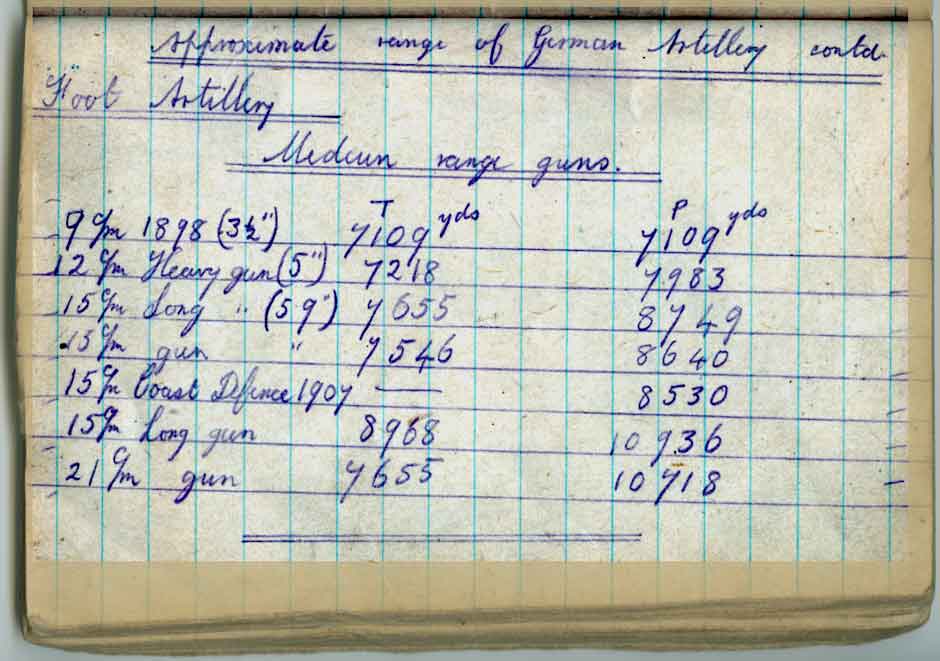 Approximate range of German Artillery contd.
"Foot" Artillery
Medium range guns.
T P
9 c/m 1898 (3½") 7109 yds 7109 yds
12 c/m Heavy gun (5") 7218 7983
15 c/m Long " (59") 7655 8749
15 c/m gun " 7546 8640
15 c/m Coast Defence 1907 — 8530
15 c/m Long gun 8968 10936
21 c/m gun 7655 10718